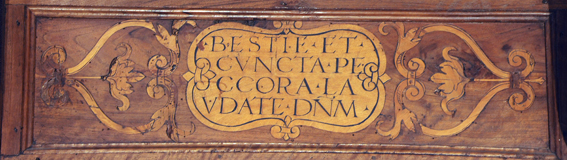 ·BESTIE·ET·
CVNCTA·PE
CCORA·LA
VDATE·DÑM·